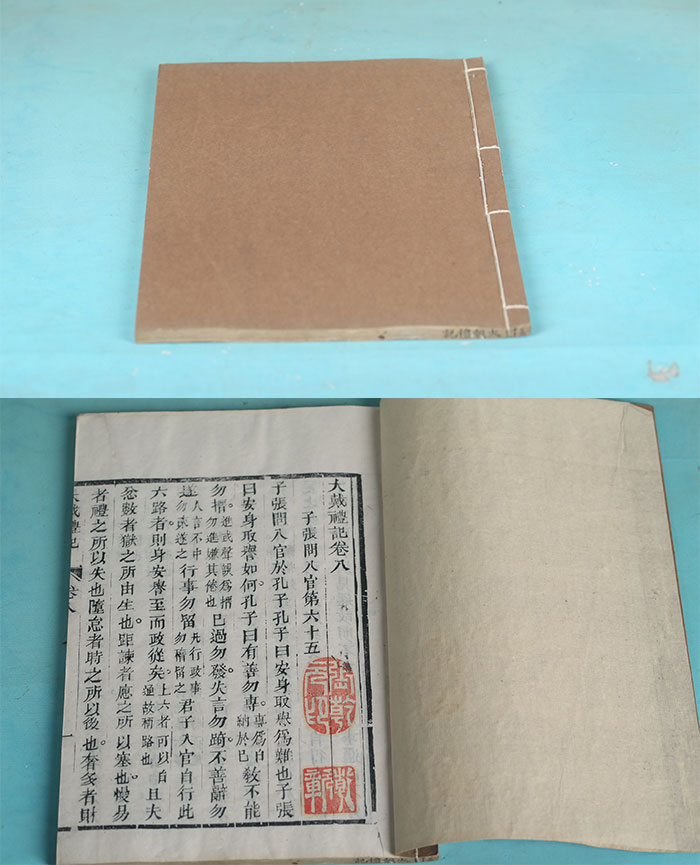 大戴禮記
大戴禮記卷八
子張問入官第六十五
子張問入官於孔子孔子曰安身取譽爲難也子張
曰安身取譽如何孔子曰有善勿專專爲自納於已教不能
勿搢進或聲誤爲搢勿進嫌其倦也已過勿發失言勿踦不善辭勿
遂人言不中勿遂之行事勿留凡行政事勿稽留之君子入官自行此
六路者則身安譽至而政從矣上六者可以自通故稱路也且夫
忿數者獄之所由生也距諫者慮之所以塞也慢易
者禮之所以失也墮怠者時之所以後也奢侈者財
大戴禮記 卷八 一